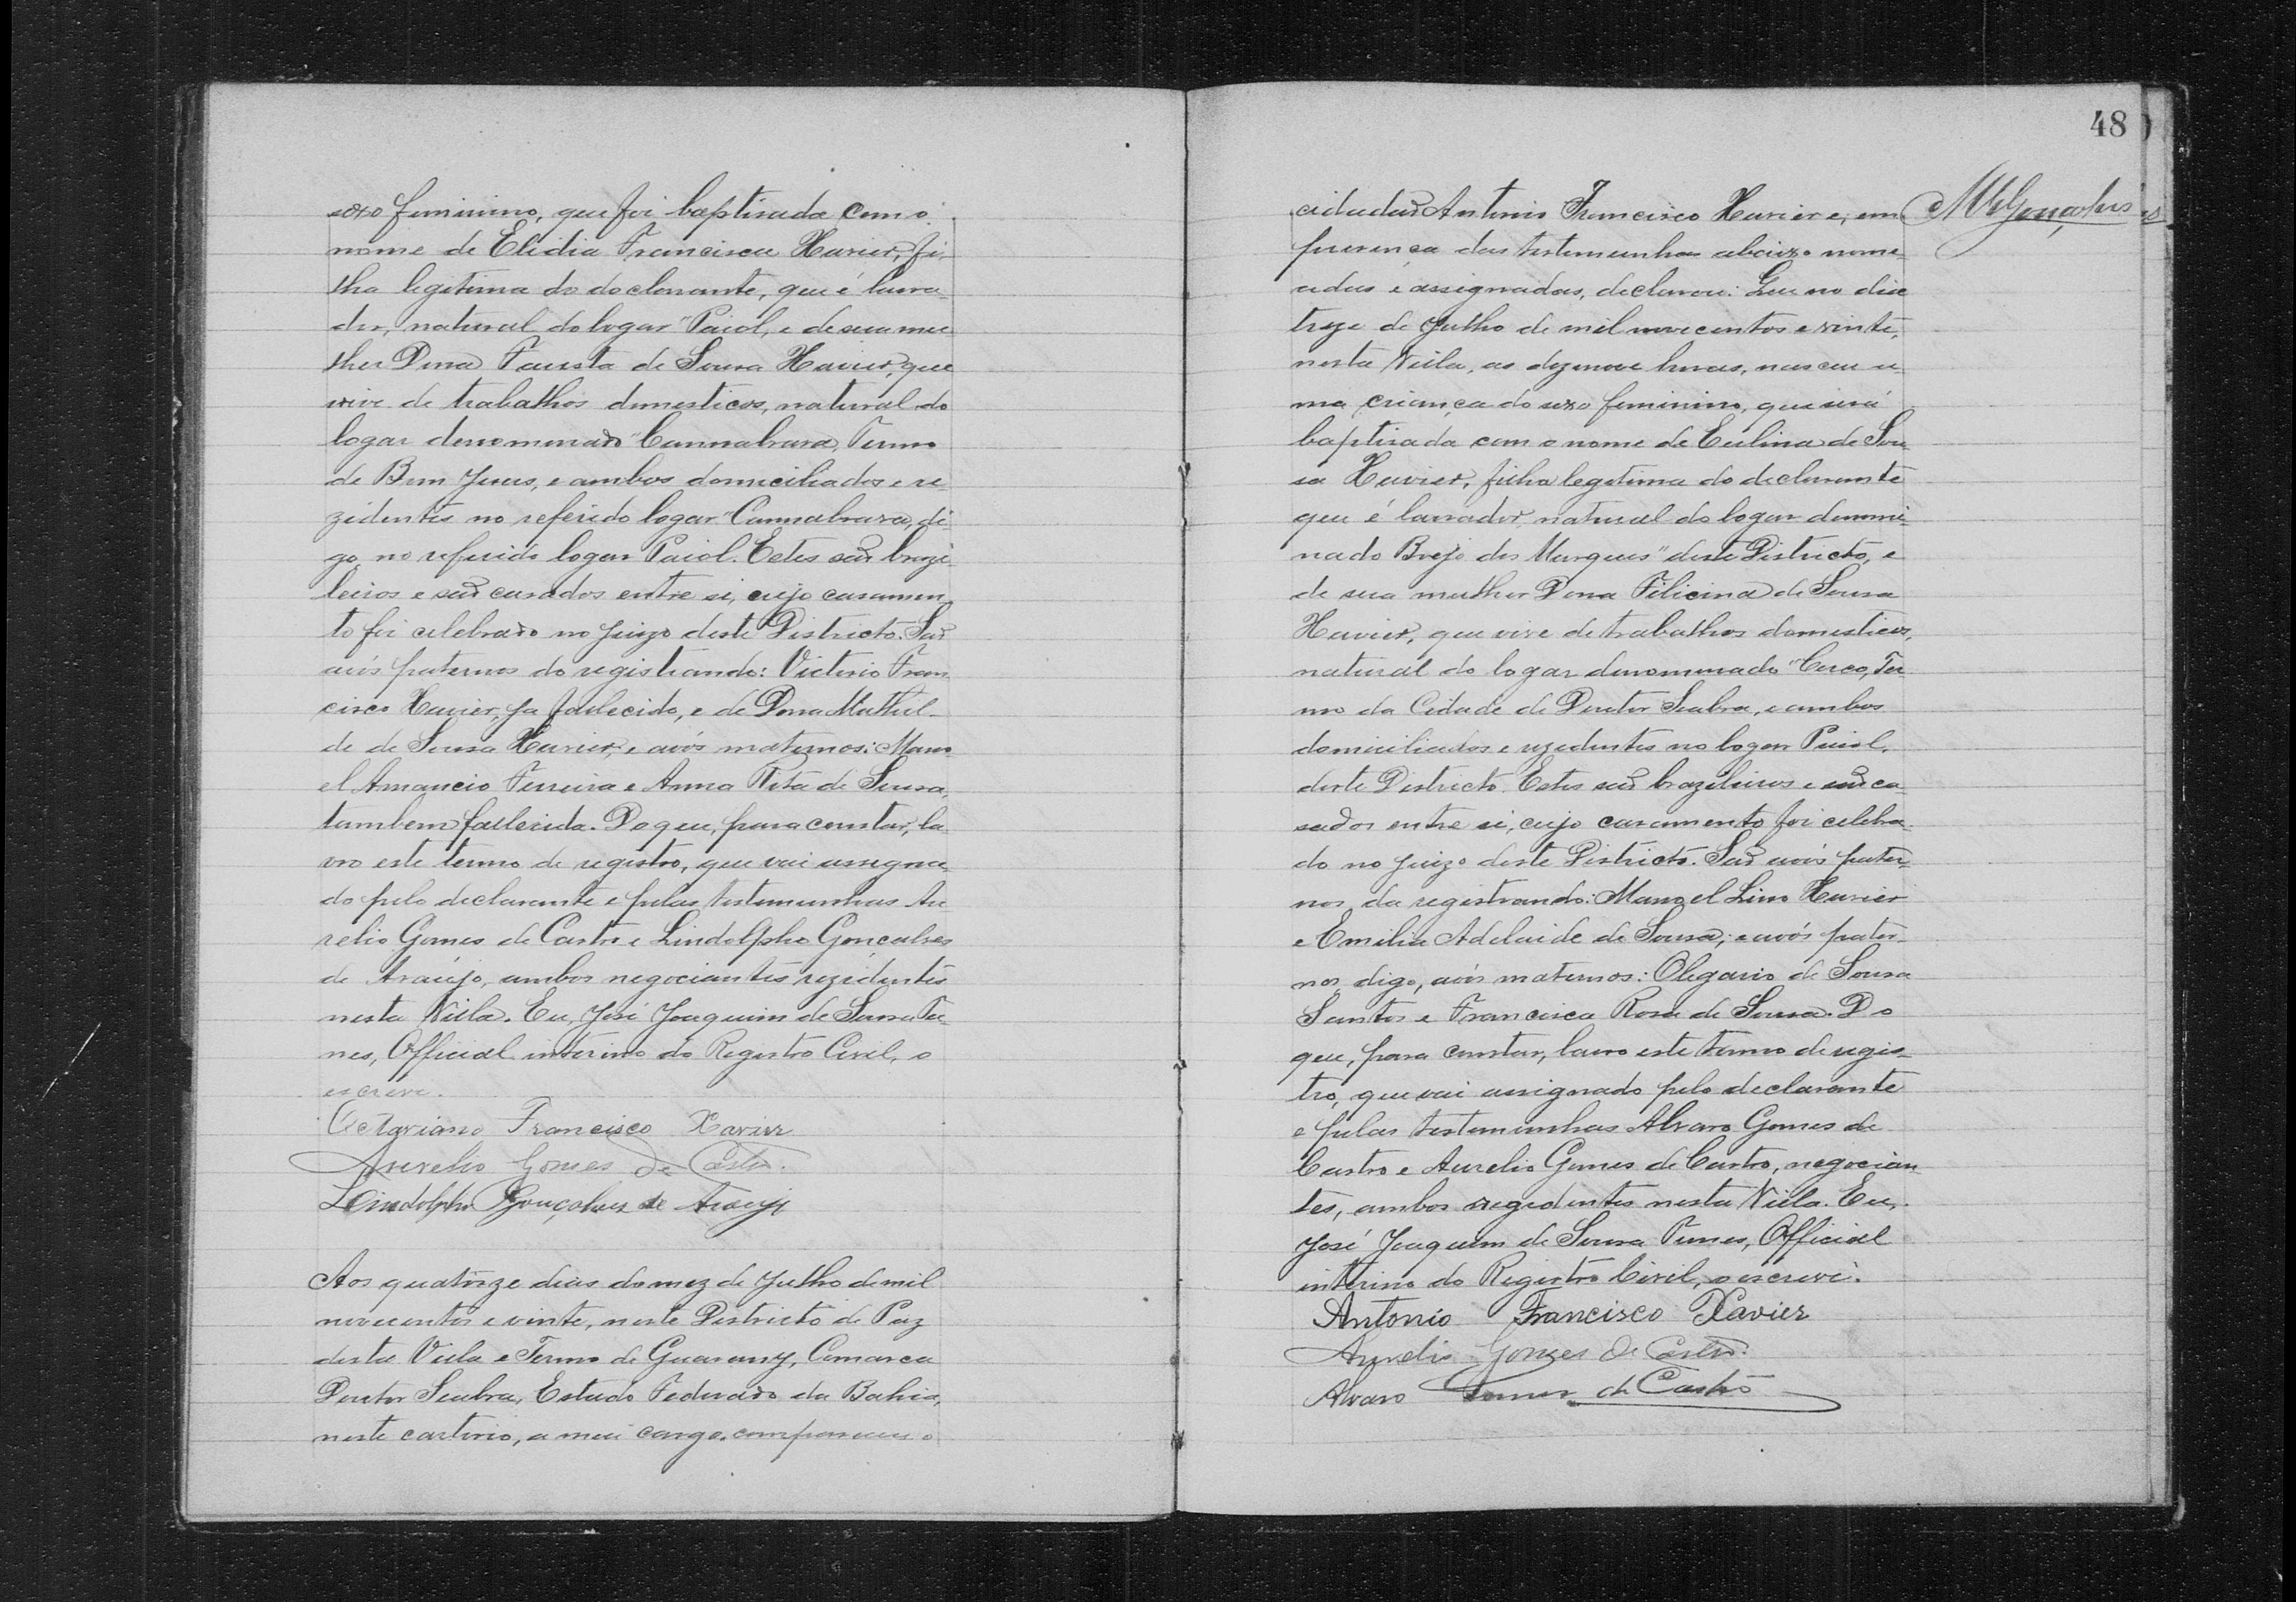 sexo feminino, que foi baptisada com o
nome de Elidia Francisca Xavier, fi-
lha legitima do declarante, que é lavra-
dor, natural do logar "Paiol, e de sua mu-
lher Dona Fausta de Sousa Xavier, que
vive de trabalhos domesticos, natural do
logar denominado "Cannabrava, Termo
de Bom Jesus, e ambos domiciliados e re-
zidentes no referido logar "Cannabrava, di-
go, no referido logar Paiol. Estes são brazi-
leiros e são casados entre si, cujo casamen-
to foi celebrado no juizo deste Districto. São
avós paternos do registrando: Victorio Fran-
cisco Xavier, ja fallecido, e de Dona Mathil-
de de Sousa Xavier, e avós maternos: Mano-
el Amancio Ferreira e Anna Rita de Sousa,
tambem fallecida. Do que, para constar, la-
vro este termo de registro, que vai assigna-
do pelo declarante e pelas testemunhas Au-
relio Gomes de Castro e Lindolpho Gonçalves
de Araujo, ambos negociantes rezidentes
nesta Villa. Eu, José Joaquim de Sousa Tu-
nes, Official interino do Registro Civil, o
escrevi.
Octaviano Francisco Xavier
Aurelio Gomes de Castro.
Lindolpho Gonçalves de Araujo
Aos quatorze dias do mez de Julho de mil
novecentos e vinte, neste Districto de Paz
desta Villa e Termo de Guarany, Comarca
Doutor Seabra, Estado Federado da Bahia,
neste cartorio, a meu cargo, compareceu o
48
cidadão Antonio Francisco Xavier e, em
prezença das testemunhas abaixo nome-
adas e assignadas, declarou: Que no dia
treze de Julho de mil novecentos e vinte,
nesta Villa, as dezenove horas, nasceu u-
ma criança do sexo feminino, que será
baptisada com o nome de Eulina de Sou-
sa Xavier, filha legitima do declarante
que é lavrador, natural do logar denomi-
nado Brejo dos Marques" deste Districto, e
de sua mulher Dona Filicina de Sousa
Xavier, que vive de trabalhos domesticos,
natural do logar denominado "Cerco, Ter-
mo da Cidade de Doutor Seabra, e ambos
domiciliados e rezidentes no logar Paiol,
deste Districto. Estes são brazileiros e são ca-
sados entre si, cujo casamento foi celebra-
do no juizo deste Districto. São avós pater-
nos da registrando: Manoel Lino Xavier
e Emilia Adelaide de Sousa; e avós pater-
nos, digo, avós maternos: Olegario de Sousa
Santos e Francisca Rosa de Sousa. Do
que, para constar, lavro este termo de regis-
tro, que vai assignado pelo declarante
e pelas testemunhas Alvaro Gomes de
Castro e Aurelio Gomes de Castro, negocian-
tes, ambos rezidentes nesta Villa. Eu,
José Joaquim de Sousa Tunes, Official
interino do Registro Civil, o escrevi.
Antonio Francisco Xavier
Aurelio Gomes de Castro.
Alvaro Gomes de Castro